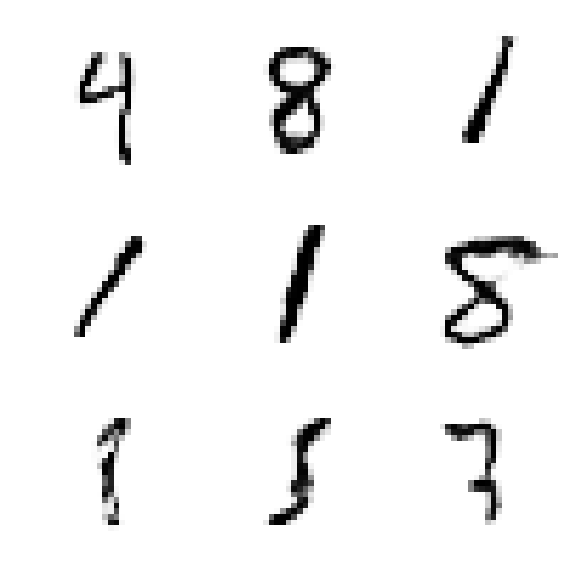 4 8 1
1 1 8
8 5 7